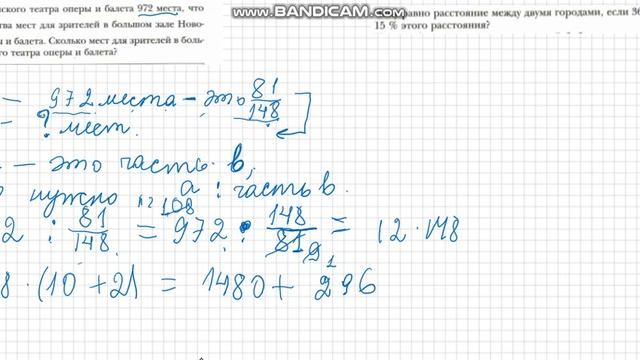 www.BANDICAM.com
ского театра оперы и балета 972 места, что
тва мест для зрителей в большом зале Ново-
ы и балета. Сколько мест для зрителей в боль-
го театра оперы и балета?
авно расстояние между двумя городами, если 36
15 % этого расстояния?
— 972 места — это 81/148
= ? мест.
— это часть в,
нужно а : часть в.
2 : 81/148 = 972 : 148/81 = 12 · 148
8 · (10 + 2) = 1480 + 296